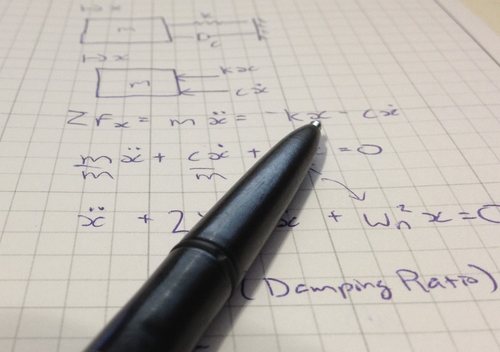 x
m
k
c
x
m
kx
cẋ
ΣFx = mẍ = -kx - cẋ
m/m ẍ + c/m ẋ + = 0
ẍ + 2 ẋ + ωn² x = 0
(Damping Ratio)